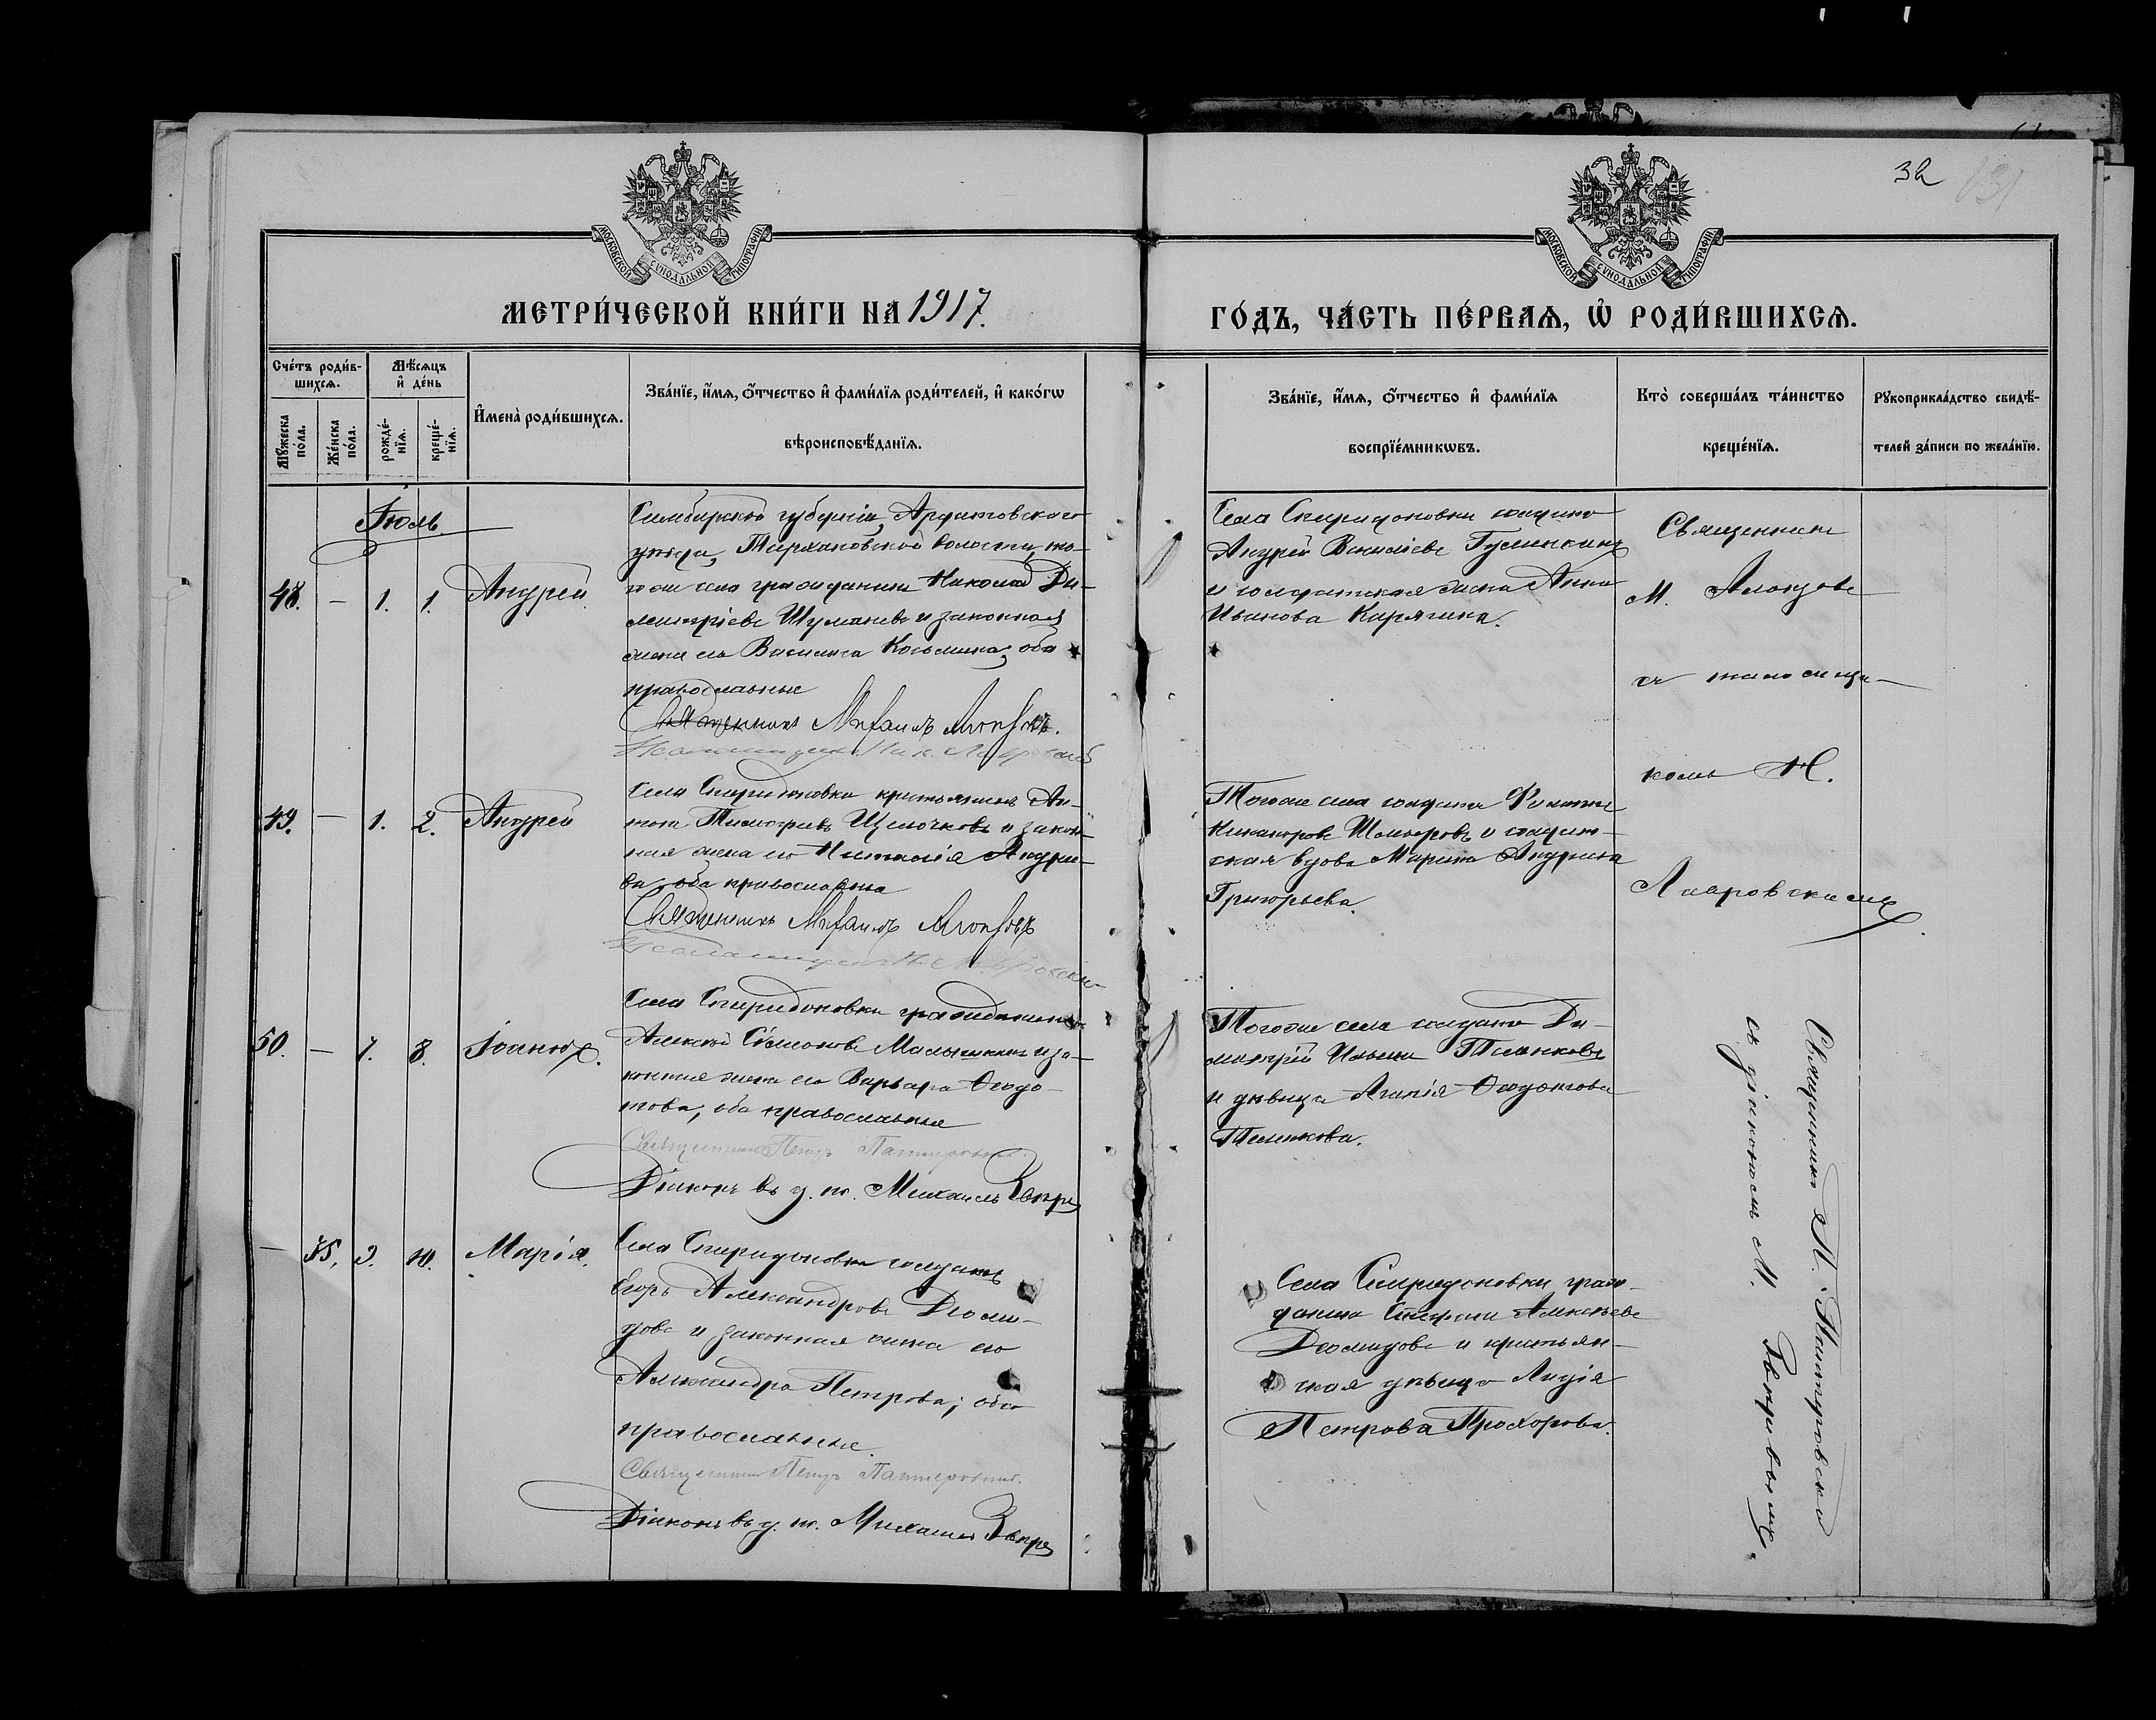 32
МОСКОВСКОЙ СѴНОДАЛЬНОЙ ТИПОГРАФІИ
МОСКОВСКОЙ СѴНОДАЛЬНОЙ ТИПОГРАФІИ
МЕТРИ́ЧЕСКОЙ КНИ́ГИ НА 1917.
ГО́ДЪ, ЧА́СТЬ ПЕ́РВАѦ, Ѿ РОДИ́ВШИХСѦ.
Сче́тъ роди́в-
шихсѧ.
Мꙋжеска по́ла.
Же́нска по́ла.
Мѣ́сѧцъ
и҆ де́нь
рожде́-
нїѧ.
креще́-
нїѧ.
И҆мена̀ роди́вшихсѧ.
Зва́нїе, и҆́мѧ, ѻ҆́тчество и҆ фами́лїѧ роди́телей, и҆ како́гѡ
вѣроисповѣ́данїѧ.
Зва́нїе, и҆́мѧ, ѻ҆́тчество и҆ фами́лїѧ
воспрїе́мникѡвъ.
Кто̀ соверша́лъ та́инство
креще́нїѧ.
Рꙋкоприкла́дство свидѣ́-
телей за́писи по жела́нїю.
Іюль
48. — 1. 1. Андрей
Симбирской губерніи, Ардатовскаго
уѣзда, Тархановской волости, то-
го же села гражданинъ Николай Ди-
митріевъ Шумаевъ и законная
жена его Василиса Косьмина; оба
православные
Священникъ Михаилъ
Села Спиридоновки солдатъ
Андрей Василіевъ
и солдатская жена Анна
Иванова Карягина.
Священникъ
М.
съ псаломщи-
комъ Н.
Лавровскимъ.
49. — 1. 2. Андрей
Села Спиридоновки крестьянинъ Ан-
Тимофеевъ Щелочковъ и закон-
ная жена его Наталія Андрее-
ва, оба православные
Священникъ Михаилъ
Псаломщикъ Н. Лавровскій
Того же села солдатъ Филиппъ
Никаноровъ и солдат-
ская вдова Марина Андреева
Григорьева.
50. — 7. 8. Іоаннъ.
Села Спиридоновки гражданинъ
Алексѣй Симеоновъ Малышкинъ и за-
конная жена его Варвара Ѳеодо-
това, оба православные
Священникъ Петръ
Діаконъ въ д. пс. Михаилъ
Того же села солдатъ Ди-
митрій Ильинъ Теленковъ
и дѣвица Агапія Ѳеодотова
Теленкова.
— 35. 9. 10. Марія.
Села Спиридоновки солдатъ
Егоръ Александровъ Деоми-
довъ и законная жена его
Александра Петрова; оба
православные.
Священникъ Петръ
Діаконъ въ д. пс. Михаилъ
Села Спиридоновки граж-
данинъ Стефанъ Алексѣевъ
Деомидовъ и крестьян-
ская дѣвица Лидія
Петрова Прохорова.
Священникъ П.
съ діакономъ М.